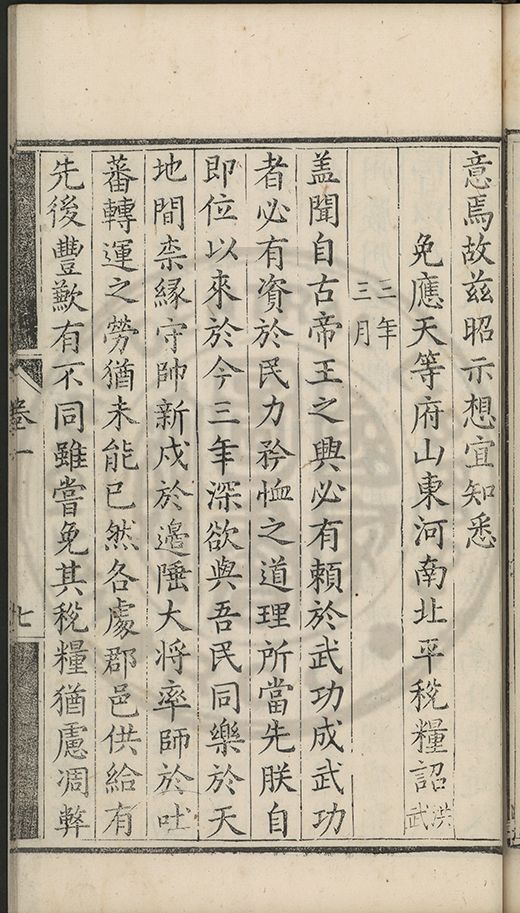 意焉故兹昭示想宜知悉
免應天等府山東河南北平稅糧詔洪武
三年三月
盖聞自古帝王之興必有賴於武功成武功
者必有資於民力矜恤之道理所當先朕自
即位以來於今三年深欲與吾民同樂於天
地間柰緣守帥新戍於邊陲大将率師於吐
蕃轉運之勞猶未能已然各處郡邑供給有
先後豐歉有不同雖嘗免其稅糧猶慮凋弊
卷一
七